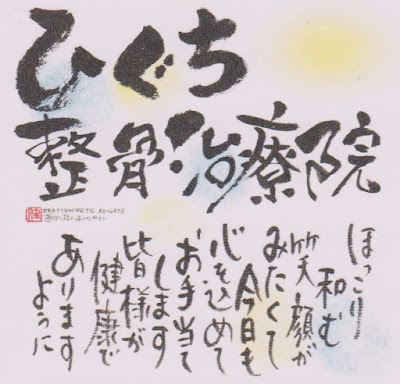 ひぐち
整骨治療院
ほっこり
和む
笑顔が
みたくて
今日も
心を込めて
お手当て
します
皆様が
健康で
あります
ように